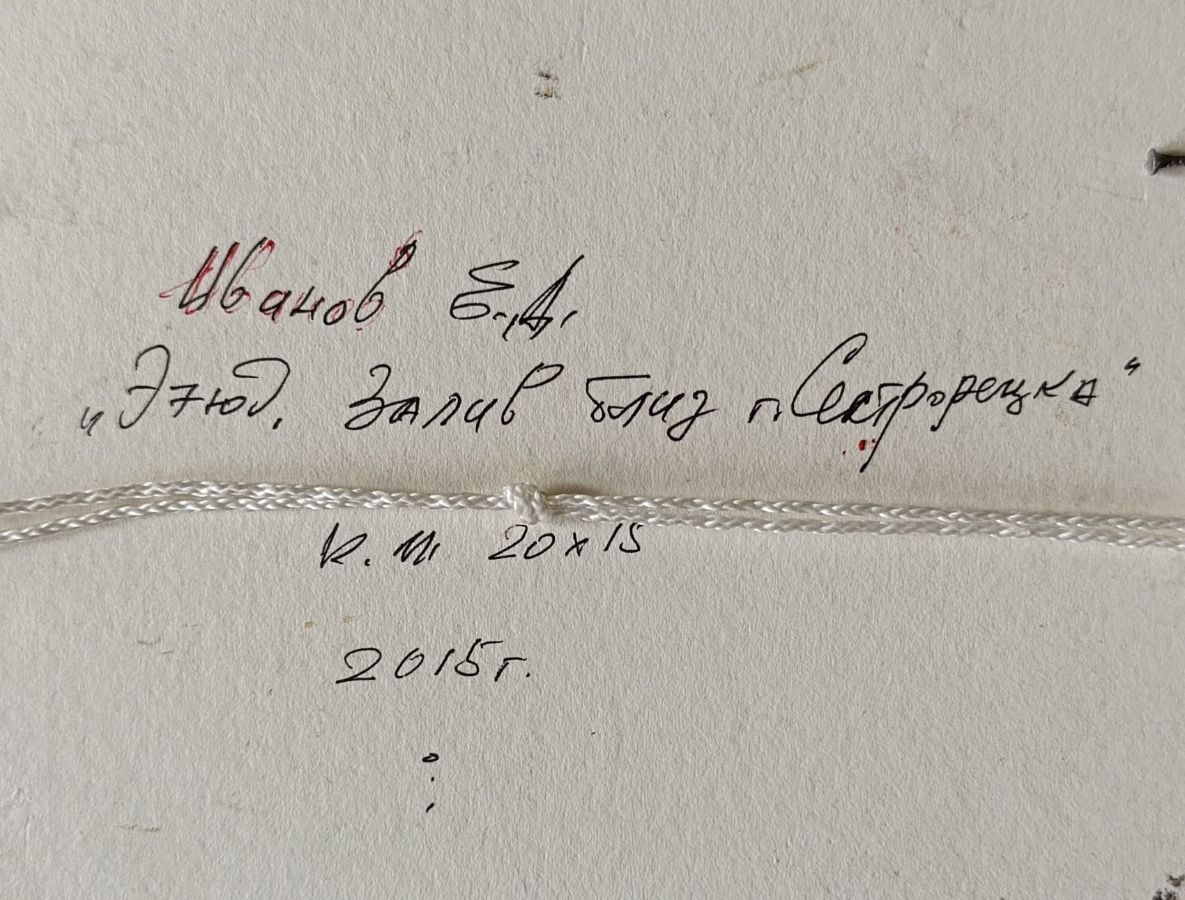 Иванов Е.А.
„Этюд. Залив близ п. Сестрорецка“
к. м. 20х15
2015г.